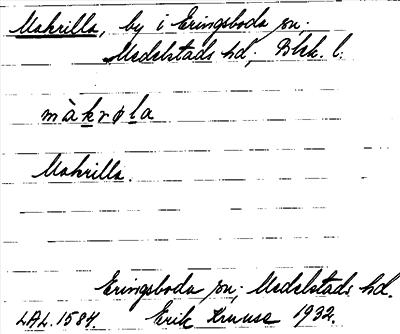 Makrilla, by i Eringsboda sn;
Medelstads hd, Blek. l.
màkrøla
Makrilla.
Eringsboda sn; Medelstads hd.
LAL. 1584. Erik Kruuse 1932.